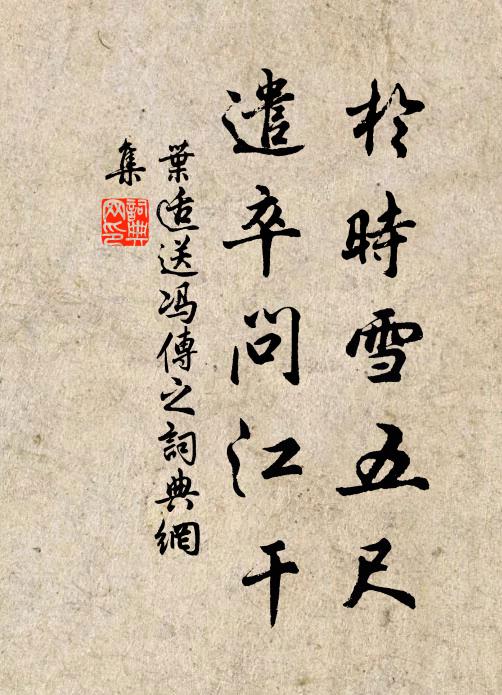 於時雪五尺
遣卒問江干
葉適送馮傳之詞典網
集
詞典
网印